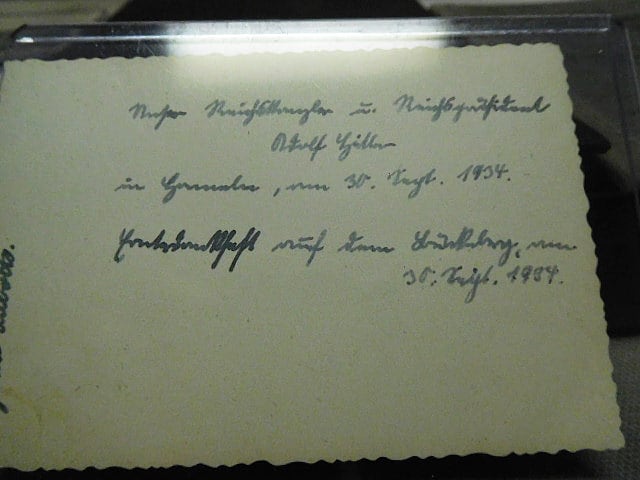 Unser Reichskanzler u. Reichspräsident
Adolf Hitler
in Hameln, am 30. Sept. 1934.
Erntedankfest auf dem Bückeberg, am
30. Sept. 1934.